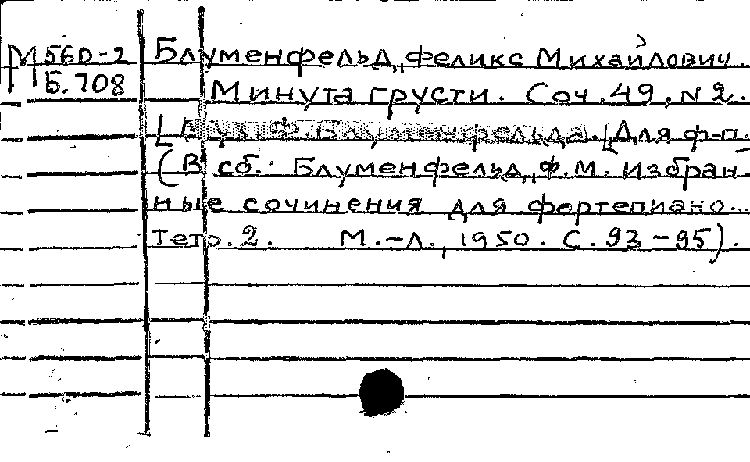 М 560-2 Блуменфельд, Феликс Михайлович.
Б.708 Минута грусти. Соч. 49, N 2.
[Для ф-п.]
(В сб.: Блуменфельд, Ф.М. Избран-
ные сочинения для фортепиано...
Тетр. 2. М.-Л., 1950. С. 93-95).